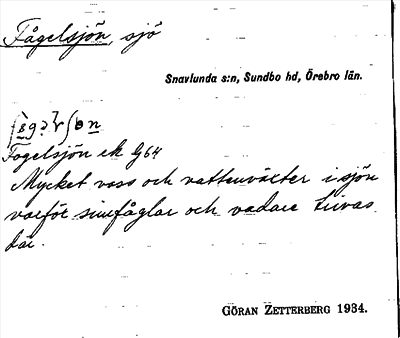 Fågelsjön, sjö
Snavlunda s:n, Sundbo hd, Örebro län.
Fogelsjön ek G64
Mycket vass och vattenväxter i sjön
varför simfåglar och vadare trivas
där.
GÖRAN ZETTERBERG 1934.